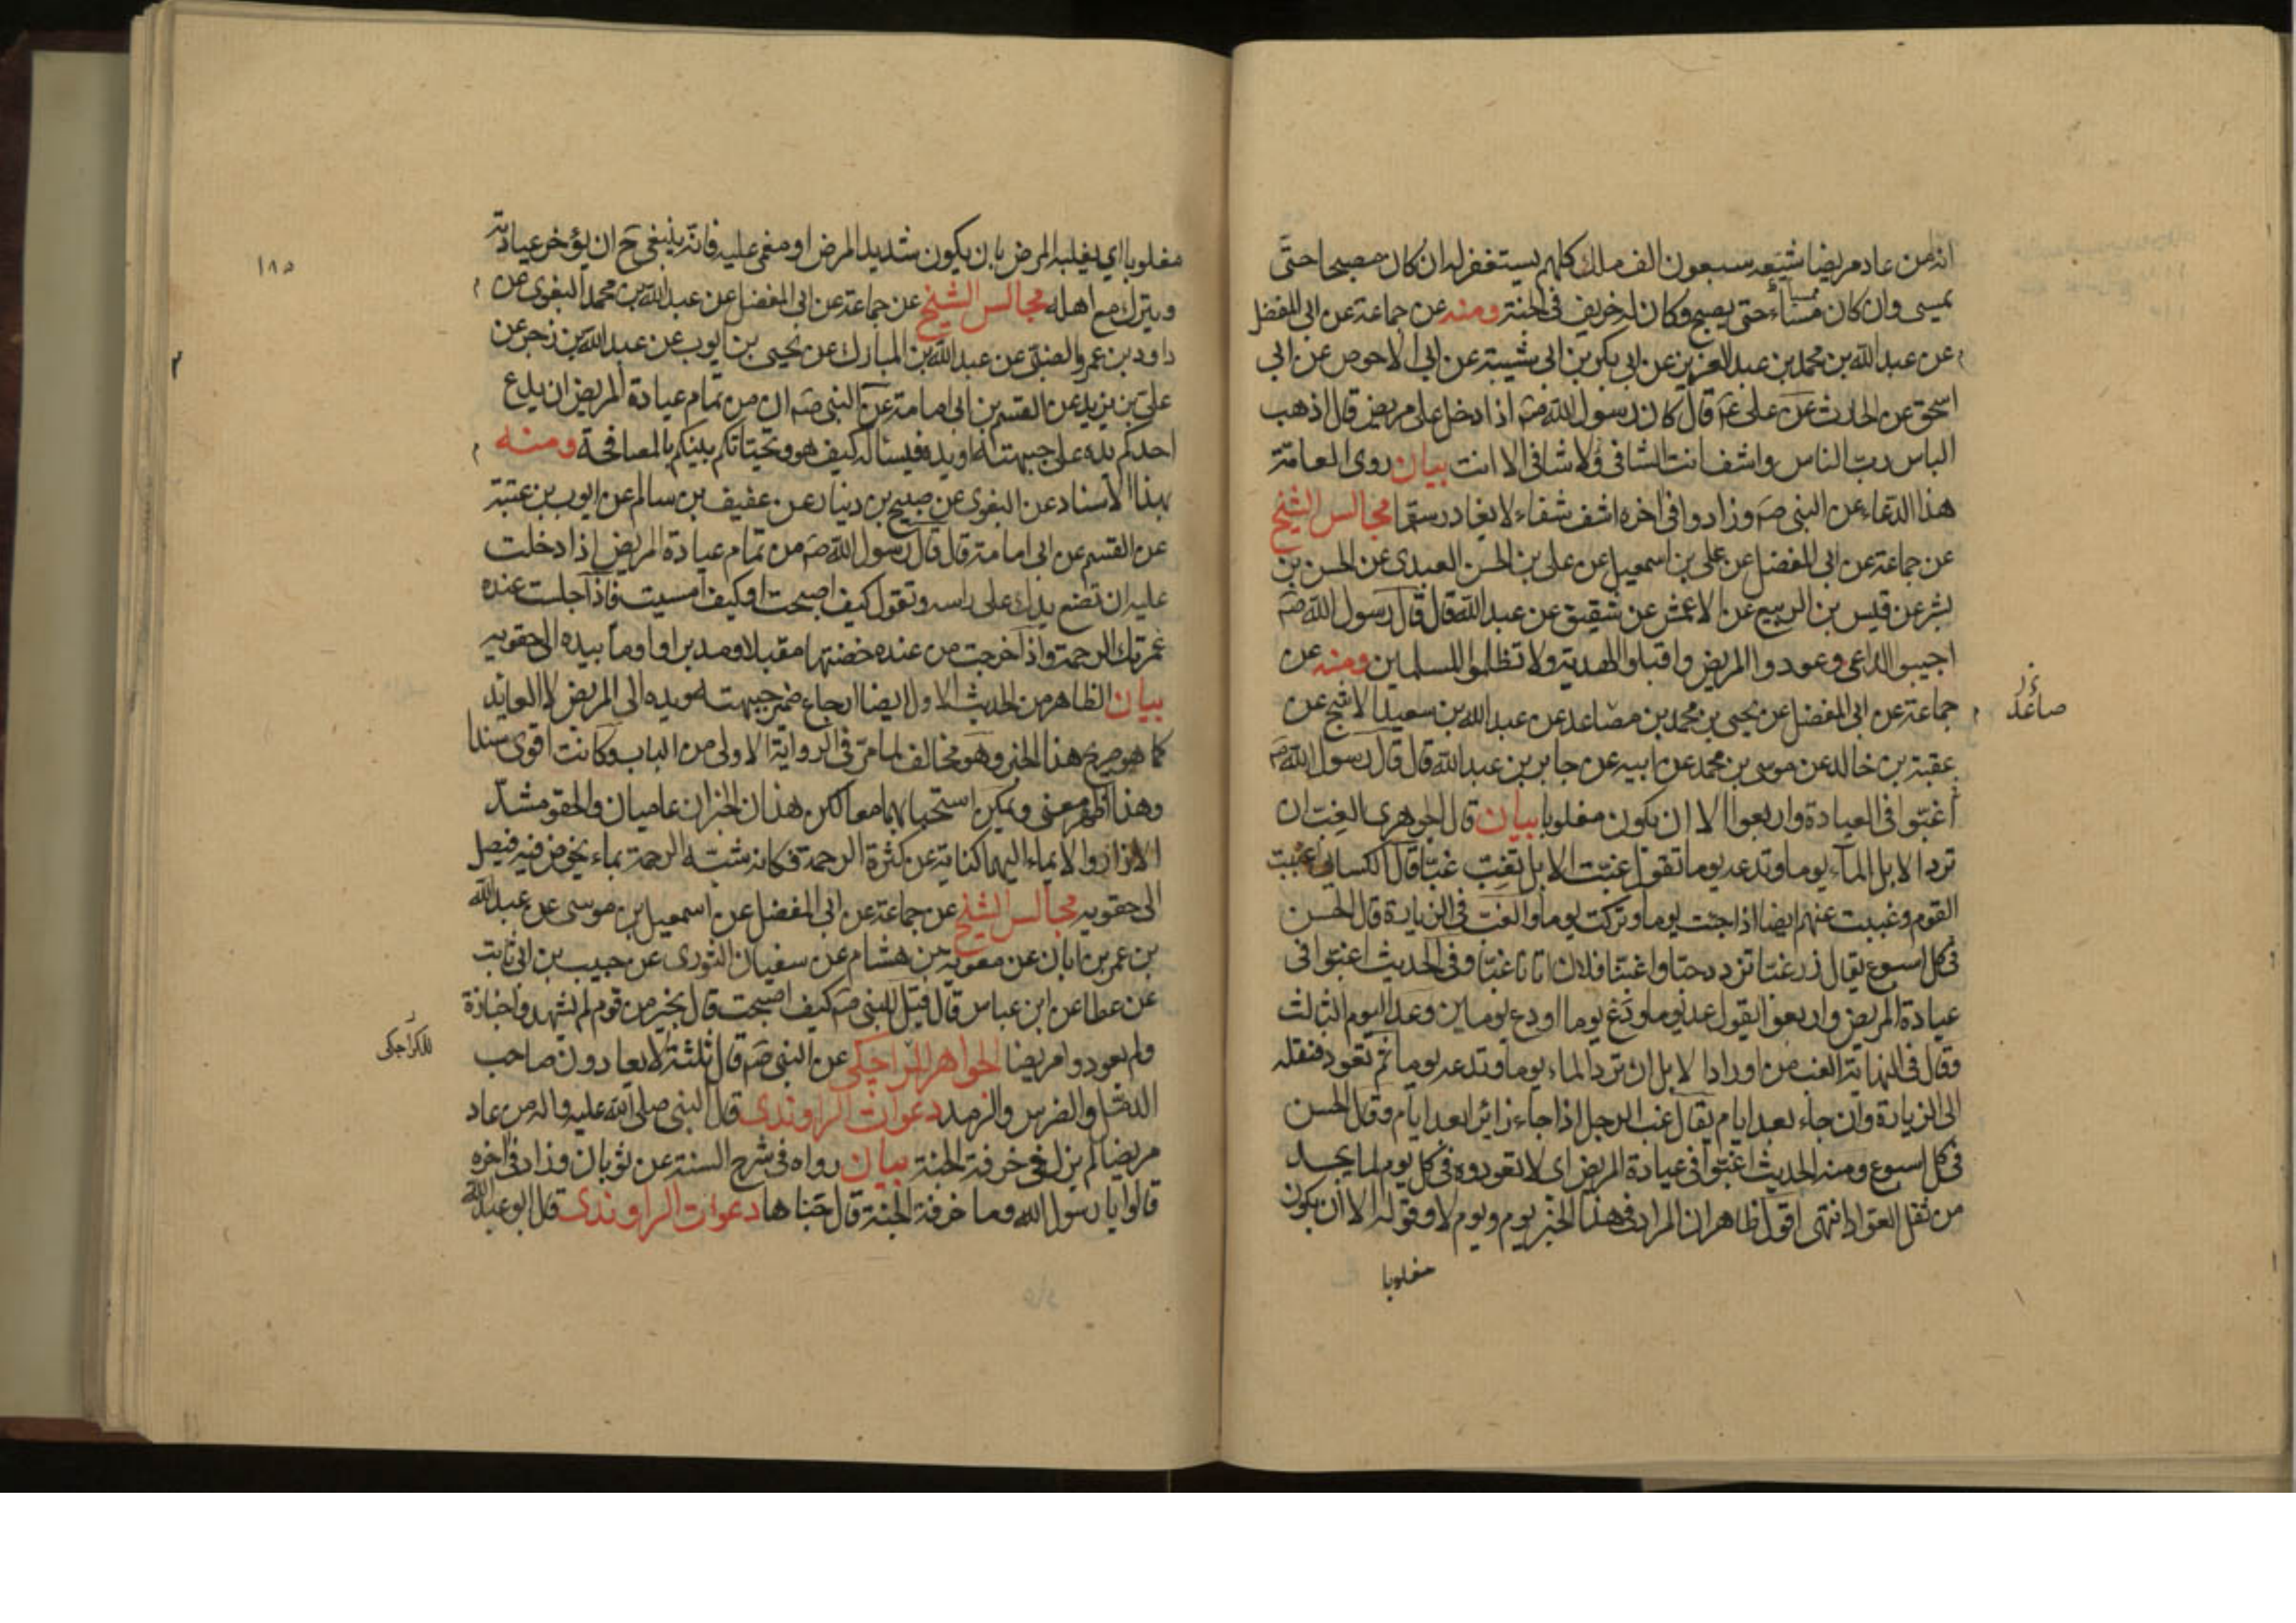 انه من عاد مريضا شيعه سبعون الف ملك كلهم يستغفر له ان كان مصبحا حتى
يمسى وان كان مساء حتى يصبح وكان له خريف فى الجنة ومنه عن جماعة عن ابى المفضل
عن عبد الله بن محمد بن عبد العزيز عن ابى بكر بن ابى شيبة عن ابى الاحوص عن ابى
اسحق عن الحارث عن على ع قال كان رسول الله ص اذا دخل على مريض قال اذهب
الباس رب الناس واشف انت الشافى ولا شافى الا انت بيان روى العامة
هذا الدعاء عن النبى ص وزادوا فى اخره اشف شفاء لا يغادر سقما مجالس الشيخ
عن جماعة عن ابى المفضل عن على بن اسمعيل عن على بن الحسن العبدى عن الحسن بن
بشر عن قيس بن الربيع عن الاعمش عن شقيق عن عبد الله قال قال رسول الله ص
اجيبوا الداعى وعودوا المريض واقبلوا الهدية ولا تظلموا المسلمين ومنه عن
جماعة عن ابى المفضل عن يحيى بن محمد بن صاعد عن عبد الله بن سعيد الاشج عن
صاعد
عقبة بن خالد عن موسى بن محمد عن ابيه عن جابر بن عبد الله قال قال رسول الله ص
اغبوا فى العيادة واربعوا الا ان يكون مغلوبا بيان قال الجوهرى الغب ان
ترد الابل الماء يوما وتدعه يوما تقول غبت الابل تغب غبا قال الكسائى اغببت
القوم وغببت عنهم ايضا اذا جئت يوما وتركت يوما والغب فى الزيارة قال الحسن
فى كل اسبوع يقال زر غبا تزدد حبا واغبنا فلان اتانا غبا وفى الحديث اغبوا فى
عيادة المريض واربعوا يقول عد يوما ودع يوما او دع يومين وعد اليوم الثالث
وقال فى النهاية الغب من اوراد الابل ان ترد الماء يوما وتدعه يوما ثم تعود فنقله
الى الزيارة وان جاء بعد ايام يقال غب الرجل اذا جاء زائرا بعد ايام وقال الحسن
فى كل اسبوع ومنه الحديث اغبوا فى عيادة المريض اى لا تعودوه فى كل يوم لما يجد
من ثقل العواد انتهى اقول ظاهر ان المراد فى هذا الخبر يوم ويوم لا وقوله الا ان يكون
مغلوبا
١٨٥
مغلوبا اى يغلبه المرض بان يكون شديد المرض او مغمى عليه فانه ينبغى ح ان يؤخر عيادته
ويترك مع اهله مجالس الشيخ عن جماعة عن ابى المفضل عن عبد الله بن محمد البغوى عن
داود بن عمرو الضبى عن عبد الله بن المبارك عن يحيى بن ايوب عن عبد الله بن زحر عن
على بن يزيد عن القسم بن ابى امامة عن النبى ص ان من تمام عيادة المريض ان يدع
احدكم يده على جبهته او يده فيسأله كيف هو وتحياتكم بينكم بالمصافحة ومنه
بهذا الاسناد عن البغوى عن صبيح بن دينار عن عفيف بن سالم عن ايوب بن عتبة
عن القسم عن ابى امامة قال قال رسول الله ص من تمام عيادة المريض اذا دخلت
عليه ان تضع يدك على راسه وتقول كيف اصبحت او كيف امسيت فاذا جلست عنده
غمرتك الرحمة واذا خرجت من عنده خضتها مقبلا ومدبرا واوما بيده الى حقويه
بيان الظاهر من الحديث الاول ايضا ارجاع ضمير جبهته ويده الى المريض لا العايد
كما هو صريح هذا الخبر وهو مخالف لما مر فى الرواية الاولى من الباب وكانت اقوى سندا
وهذا اظهر معنى ويمكن استحبابهما معا لكن هذان الخبران عاميان والحقو مشد
الازار والايماء اليهما كناية عن كثرة الرحمة فكانه شبه الرحمة بماء يخوض فيه فيصل
الى حقويه مجالس الشيخ عن جماعة عن ابى المفضل عن اسمعيل بن موسى عن عبد الله
بن عمر بن ابان عن معوية بن هشام عن سفيان الثورى عن حبيب بن ابى ثابت
عن عطا عن ابن عباس قال قيل للنبى ص كيف اصبحت قال بخير من قوم لم يشهدوا جنازة
ولم يعودوا مريضا الجواهر للكراجكى عن النبى ص قال ثلثة لا يعادون صاحب
للكراجكى
الدمل والضرس والرمد دعوات الراوندى قال النبى صلى الله عليه واله من عاد
مريضا لم يزل فى خرفة الجنة بيان رواه فى شرح السنة عن ثوبان وزاد فى اخره
قالوا يا رسول الله وما خرفة الجنة قال جناها دعوات الراوندى قال ابو عبد الله